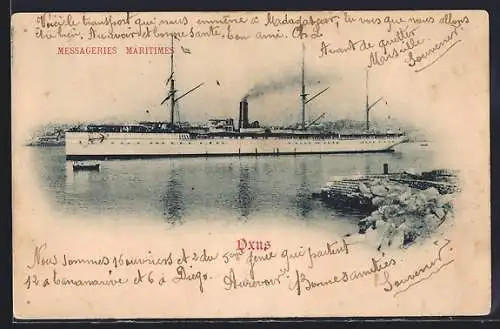 Voici le transport qui nous emmène à Madagascar, tu vois que nous allons
être bien, Au revoir et bonne santé, bon ami.
MESSAGERIES MARITIMES
Avant de quitter
Marseille
Souvenir
Oxus
Nous sommes 16 ouvriers et 2 du 5e génie qui partent
12 à Tananarive et 6 à Diego. Au revoir
Bonnes amitiés
Souvenir